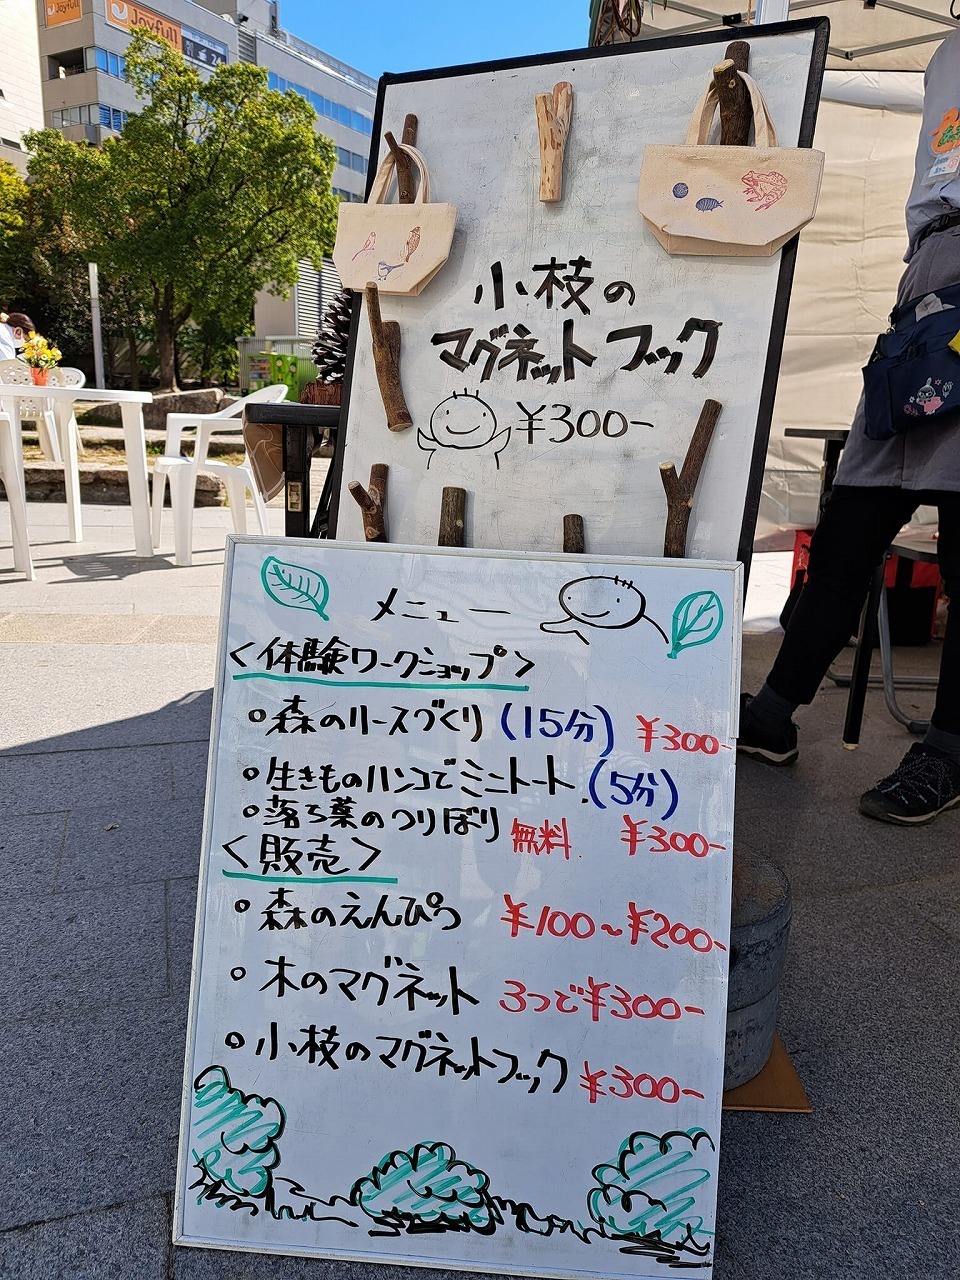 Joyfull
Joyfull
24
小枝の
マグネットフック
¥300-
メニュー
<体験ワークショップ>
○森のリースづくり(15分) ¥300-
○生きものハンコでミニトート(5分)
¥300-
○落ち葉のつりぼり 無料
<販売>
○森のえんぴつ ¥100~¥200-
○木のマグネット 3つで¥300-
○小枝のマグネットフック ¥300-